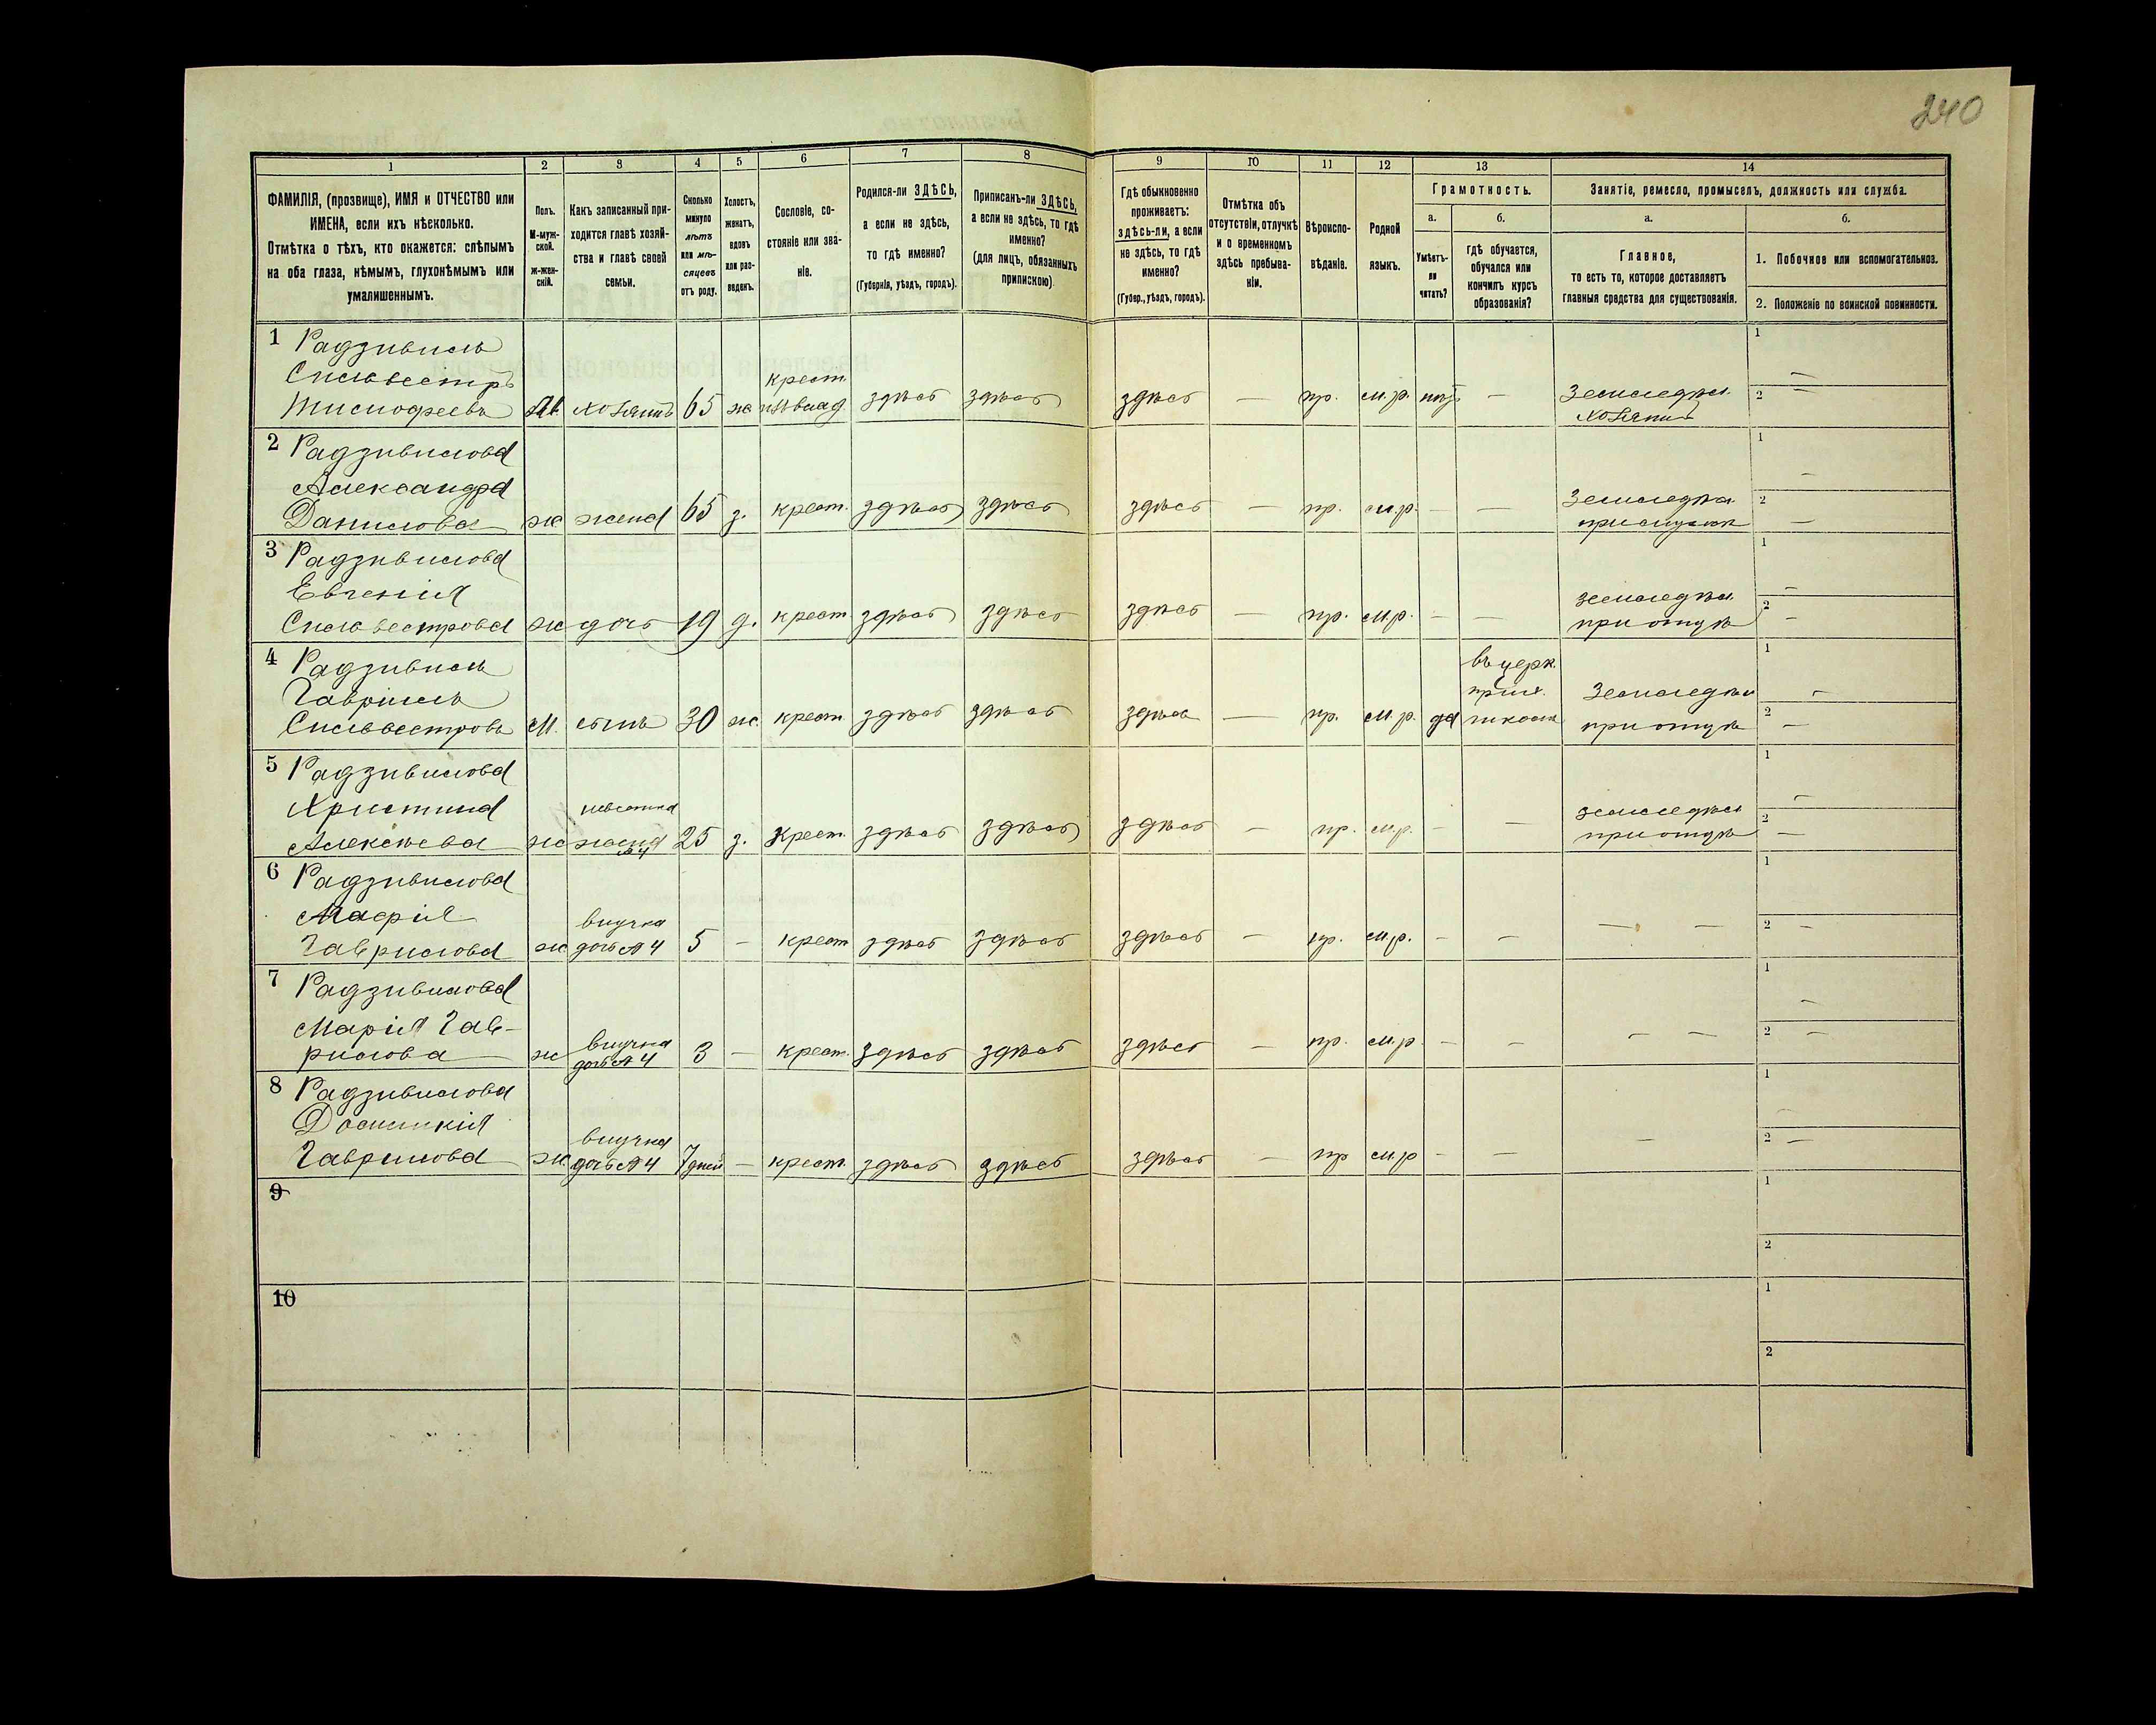 240
1 2 3 4 5 6 7 8 9 10 11 12 13 14
ФАМИЛІЯ, (прозвище), ИМЯ и ОТЧЕСТВО или
ИМЕНА, если ихъ нѣсколько.
Отмѣтка о тѣхъ, кто окажется: слѣпымъ
на оба глаза, нѣмымъ, глухонѣмымъ или
умалишеннымъ.
Полъ.
М-муж-
ской.
ж-жен-
скій.
Какъ записанный при-
ходится главѣ хозяй-
ства и главѣ своей
семьи.
Сколько
минуло
лѣтъ
или мѣ-
сяцевъ
отъ роду.
Холостъ,
женатъ,
вдовъ
или раз-
веденъ.
Сословіе, со-
стояніе или зва-
ніе.
Родился-ли ЗДѢСЬ,
а если не здѣсь,
то гдѣ именно?
(Губернія, уѣздъ, городъ).
Приписанъ-ли ЗДѢСЬ,
а если не здѣсь, то гдѣ
именно?
(для лицъ, обязанныхъ
припискою)
Гдѣ обыкновенно
проживаетъ:
здѣсь-ли, а если
не здѣсь, то гдѣ
именно?
(Губер., уѣздъ, городъ).
Отмѣтка объ
отсутствіи, отлучкѣ
и о временномъ
здѣсь пребыва-
ніи.
Вѣроиспо-
вѣданіе.
Родной
языкъ.
Грамотность.
а.
Умѣетъ-
ли
читать?
б.
гдѣ обучается,
обучался или
кончилъ курсъ
образованія?
Занятіе, ремесло, промыселъ, должность или служба.
а.
Главное,
то есть то, которое доставляетъ
главныя средства для существованія.
б.
1. Побочное или вспомогательное.
2. Положеніе по воинской повинности.
1 Радзивилъ
Сильвестръ
крест.
хозяинъ 65 ж здѣсь здѣсь здѣсь — пр. м.р. — земледѣл.
хозяинъ
2 Радзивилова
Александра
Данилова ж жена 65 з. крест. здѣсь здѣсь здѣсь — пр. м.р. — — земледѣл.
3 Радзивилова
Евгенія
Сильвестрова ж дочь 19 д. крест здѣсь здѣсь здѣсь — пр. м.р. — — земледѣл
при отцѣ
4 Радзивилъ
Гавріилъ
Сильвестровъ М. сынъ 30 ж. крест здѣсь здѣсь здѣсь — пр. м.р. да
въ церк.
прих.
школѣ
земледѣл
при отцѣ
5 Радзивилова
Христина
Алексѣева ж
невестка
жена
№4
25 з. крест. здѣсь здѣсь здѣсь — пр. м.р. — — земледѣл
при отцѣ
6 Радзивилова
Гаврилова ж
внучка
дочь №4 5 — крест здѣсь здѣсь здѣсь — пр. м.р. — — — —
7 Радзивилова
Марія Гав-
рилова ж
внучка
дочь №4 3 — крест. здѣсь здѣсь здѣсь — пр. м.р — — — —
8 Радзивилова
Гаврилова ж
внучка
дочь №4 7 дней — крест. здѣсь здѣсь здѣсь — пр м.р — — —
9
10